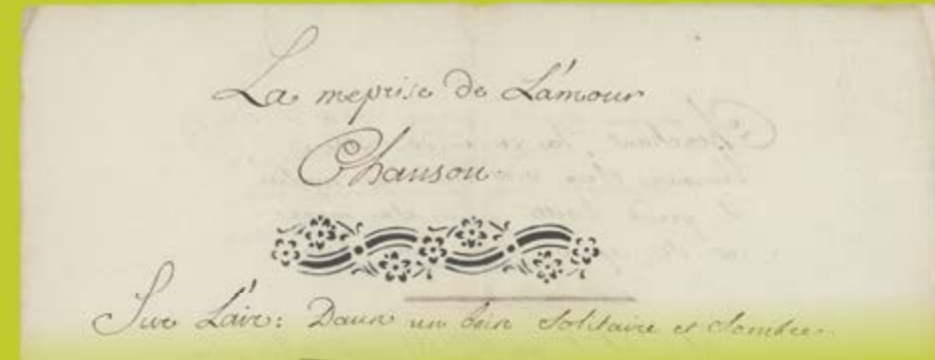 La meprise de L'amour
Chanson
Sur L'air: Dans un bois Solitaire et Sombre.